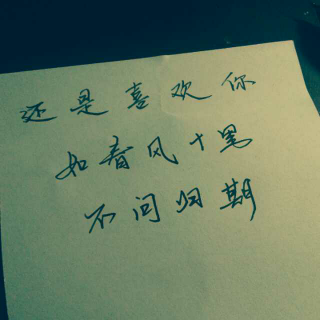 还是喜欢你
如春风十里
不问归期